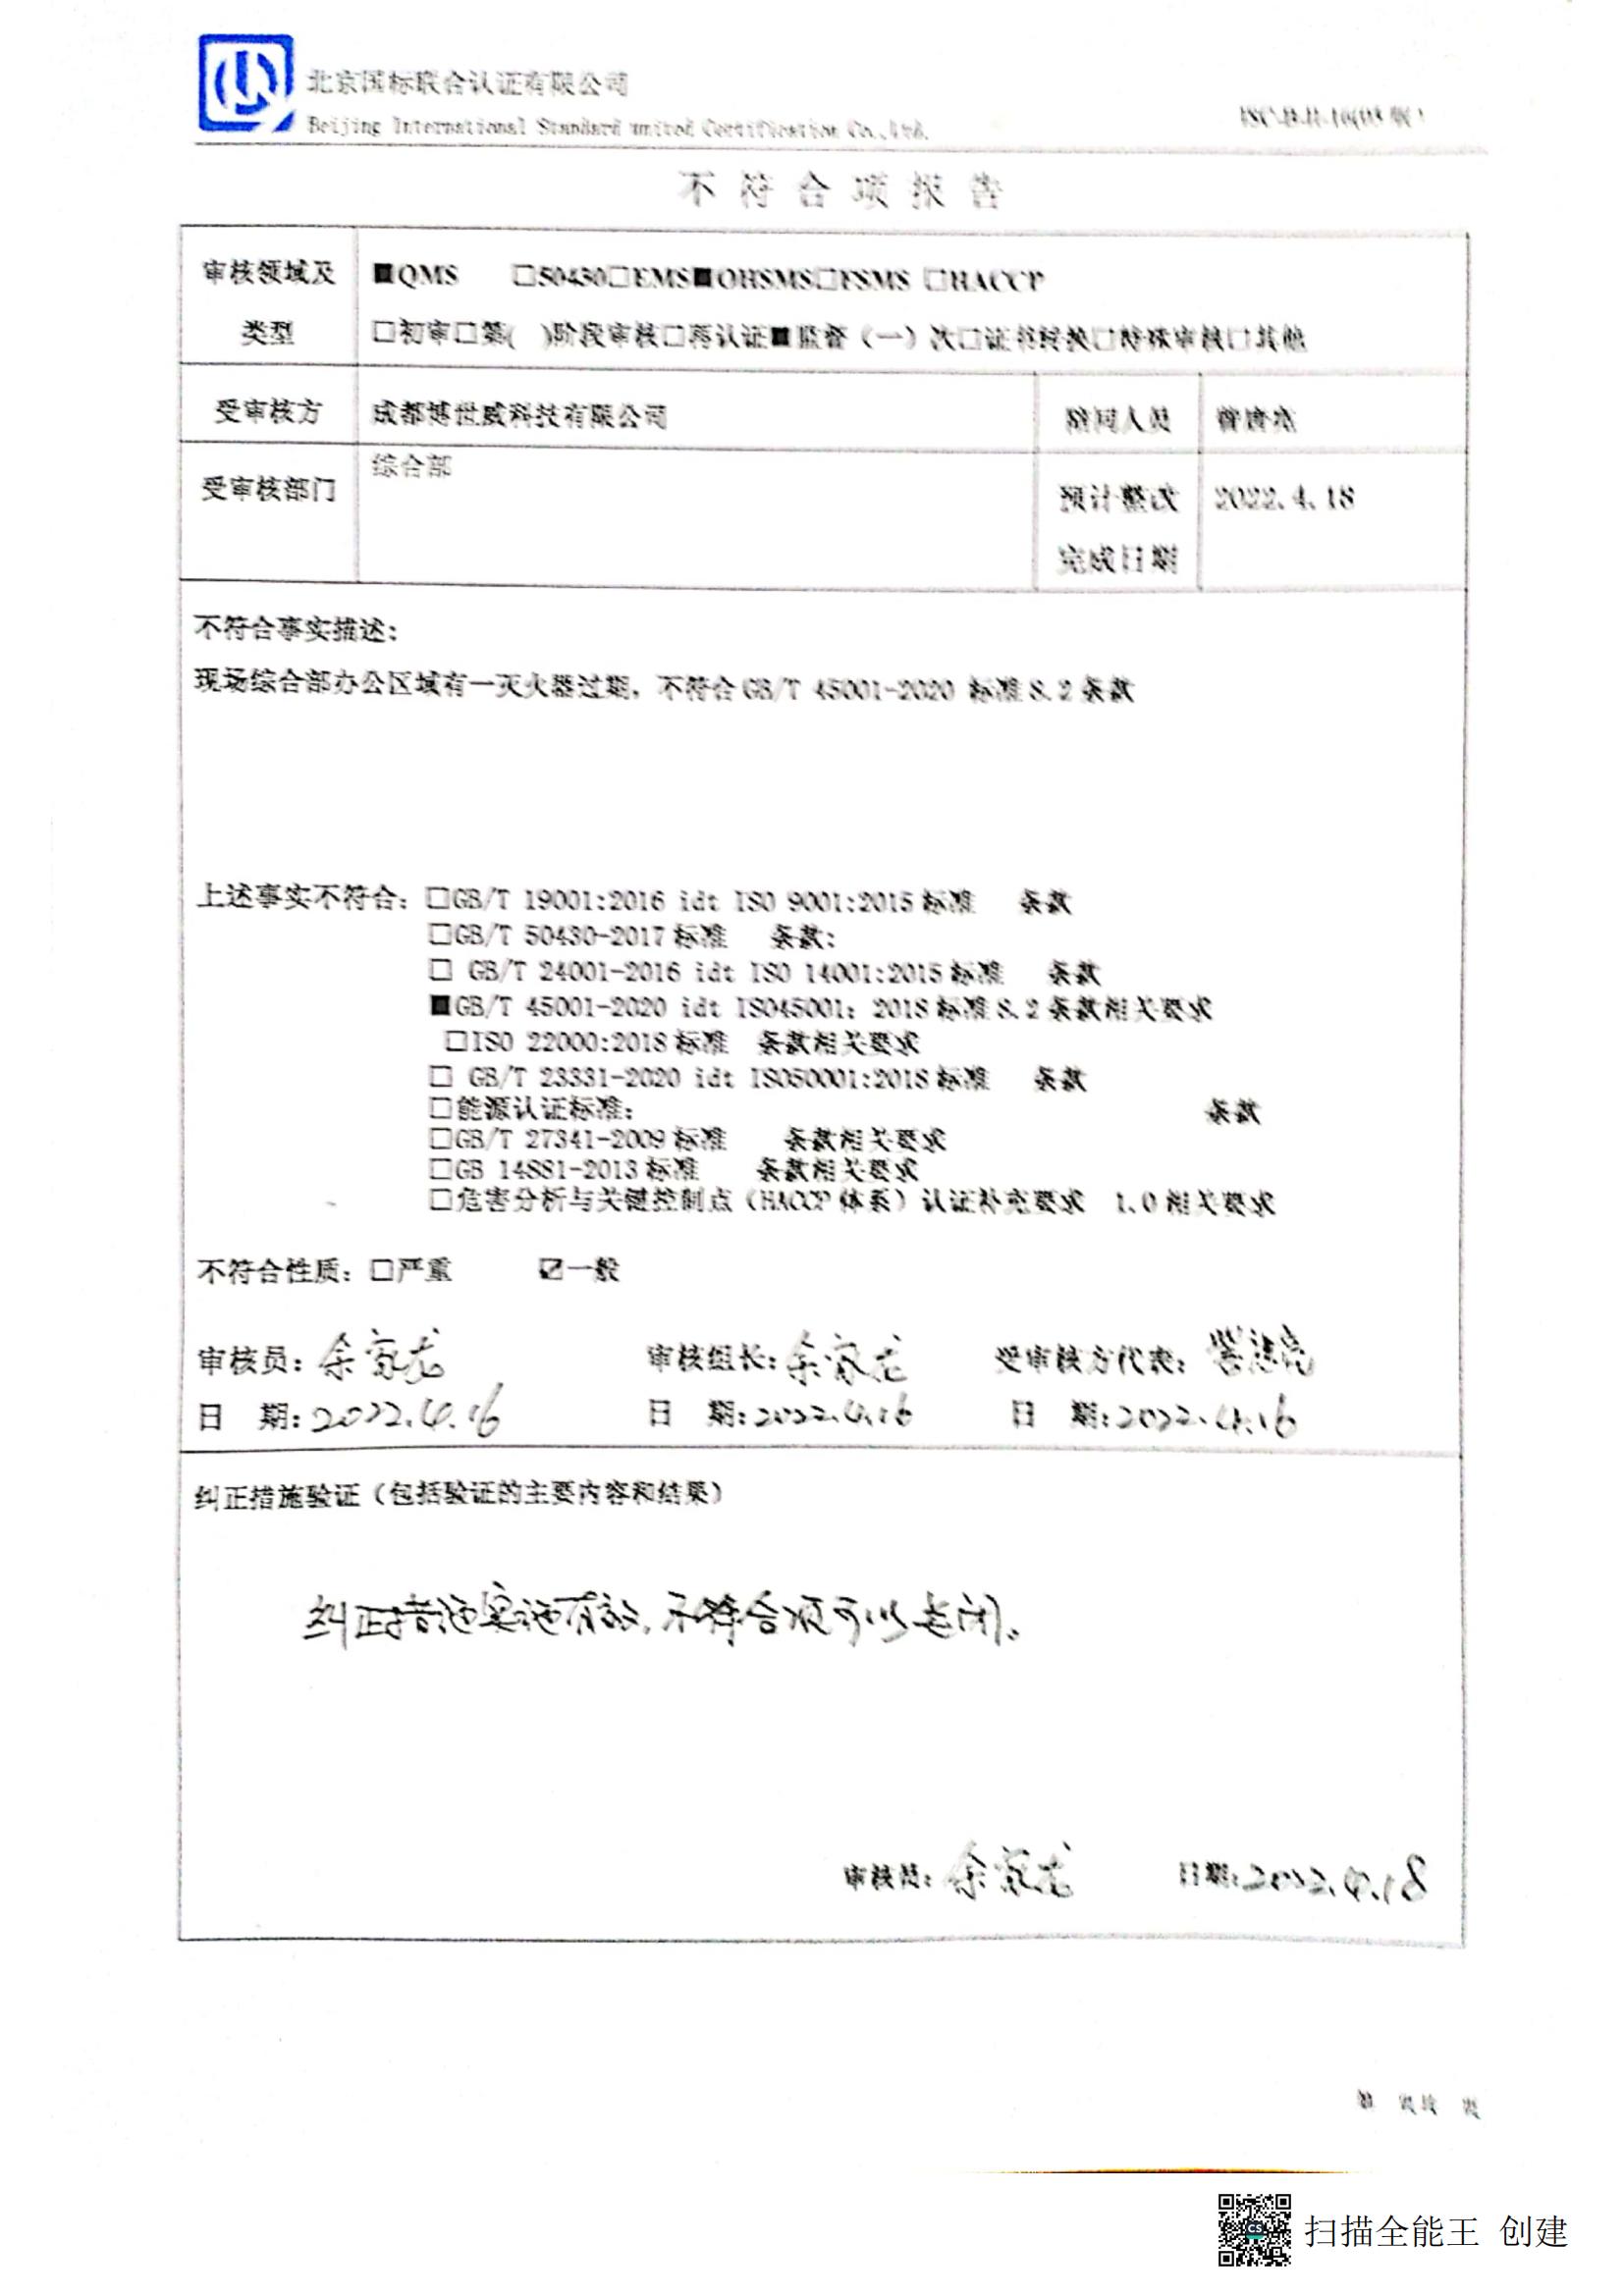 北京国标联合认证有限公司
Beijing International Standard united Certification Co.,Ltd.
不符合项报告
审核领域及类型
■QMS □50430□EMS■OHSMS□FSMS □HACCP
□初审□第( )阶段审核□再认证■监督（一）次□证书转换□特殊审核□其他
受审核方 成都博世威科技有限公司 陪同人员
受审核部门 综合部 预计整改完成日期 2022.4.18
不符合事实描述：
现场综合部办公区域有一灭火器过期，不符合GB/T 45001-2020 标准8.2条款
上述事实不符合：□GB/T 19001:2016 idt ISO 9001:2015标准 条款
□GB/T 50430-2017标准 条款：
□ GB/T 24001-2016 idt ISO 14001:2015标准 条款
■GB/T 45001-2020 idt ISO45001：2018标准8.2条款相关要求
□ISO 22000:2018标准 条款相关要求
□ GB/T 23331-2020 idt ISO50001:2018标准 条款
□能源认证标准： 条款
□GB/T 27341-2009标准 条款相关要求
□GB 14881-2013标准 条款相关要求
□危害分析与关键控制点（HACCP体系）认证补充要求 1.0相关要求
不符合性质：□严重 ☑一般
审核员：余家龙 审核组长：余家龙 受审核方代表：
日 期：2022.4.16 日 期：2022.4.16 日 期：2022.4.16
纠正措施验证（包括验证的主要内容和结果）
纠正措施实施有效，不符合项可以关闭。
审核员：余家龙 日期：2022.4.18
扫描全能王 创建